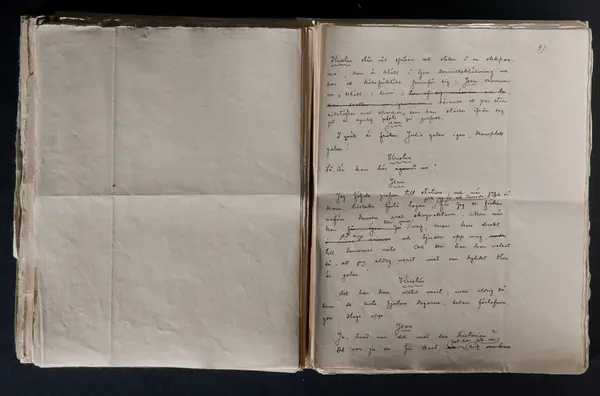 27
Kristin står vid spisen och steker i en stekpan-
na; hon är klädd i ljus bomullsklädning och
har ett köksförkläde framför sig; Jean kommer
in, klädd i livré, bärande ett par stora
ridstöflar med sporrar, som han ställer ifrån sig
på en synlig plats på golfvet.
Jean
I qväll är fröken Julie galen igen; komplett
galen!
Kristin
Så. Är han här nu?
Jean
Jag följde grefven till station, och när jag
gick jag in och dansade
kom tillbaka förbi logen får jag se fröken
anföra dansen med skogvaktarn. Men när
hon blir mig, rusar hon direkt
och bjuder upp mig
till damernas vals. Och sen har hon valsat
så, att jag aldrig varit med om dylikt. Hon
är galen.
Kristin
Det har hon alltid varit, men aldrig så
som de sista fjorton dagarne, sedan förlofnin-
gen slogs opp.
Jean
Ja, hvad var det med den historien?
Det var ju en fin karl,